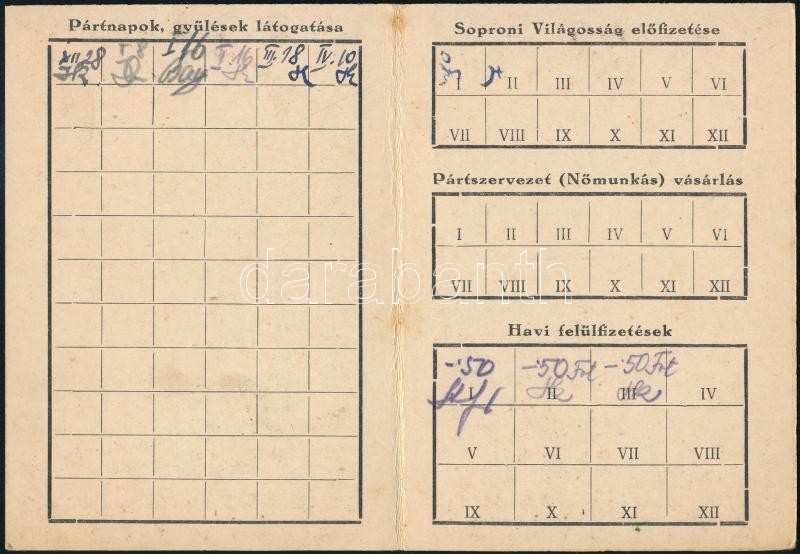 Pártnapok, gyülések látogatása
XII 28 I 8 I/6 II. 16 III. 18 IV. 10
Soproni Világosság előfizetése
I II III IV V VI
VII VIII IX X XI XII
Pártszervezet (Nőmunkás) vásárlás
I II III IV V VI
VII VIII IX X XI XII
darabanth
Havi felülfizetések
-·50 -·50 Frt -·50 Frt
I II III IV
V VI VII VIII
IX X XI XII